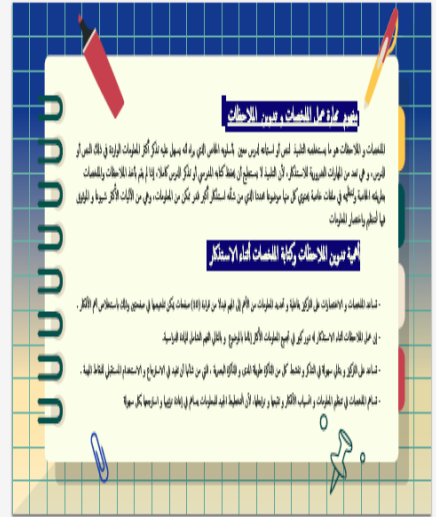 مفهوم مهارة عمل الملخصات و تدوين الملاحظات
الملخصات و الملاحظات هو ما يستخلصه التلميذ لنص أو استيعابه لدرس معين بأسلوبه الخاص الذي يراه أنه يسهل عليه تذكر أكثر المعلومات الواردة في ذلك النص أو
الدرس، و هي تعد من المهارات الضرورية للاستذكار، لأن التلميذ لا يستطيع أن يحفظ كتابه المدرسي أو تذكر الدرس كاملا، إذا لم يقم بأخذ الملاحظات والملخصات
بطريقته الخاصة وتنظيمها في ملفات خاصة يحتوي كل منها موضوعا محددا الذي من شأنه استذكار أكبر قدر ممكن من المعلومات، وهي من الآليات الأكثر شيوعا و الموثوق
فيها لتنظيم واختصار المعلومات
أهمية تدوين الملاحظات وكتابة الملخصات أثناء الاستذكار
- تساعد الملخصات و الاختصارات على التركيز بفاعلية و تحديد المعلومات من الأهم إلى المهم فبدلا من قراءة (10) صفحات يمكن تلخيصها في صفحتين وذلك باستخلاص أهم الأفكار .
- إن عمل الملاحظات أثناء الاستذكار له دور كبير في تجميع المعلومات الأكثر ارتباطا بالموضوع و بالتالي الفهم الشامل للمادة الدراسية.
- تساعد على التركيز و بالتالي سهولة في التذكر و تنشيط كل من الذاكرة طويلة المدى و الذاكرة البصرية ، التي من شأنها أن تفيد في الاسترجاع و الاستخدام المستقبلي للنقاط المهمة .
- تساهم الملخصات في تنظيم المعلومات و انسياب الأفكار و تتبعها و ترابطها، لأن التخطيط الجيد للمعلومات يساهم في إعادة ترتيبها و استرجاعها بكل سهولة